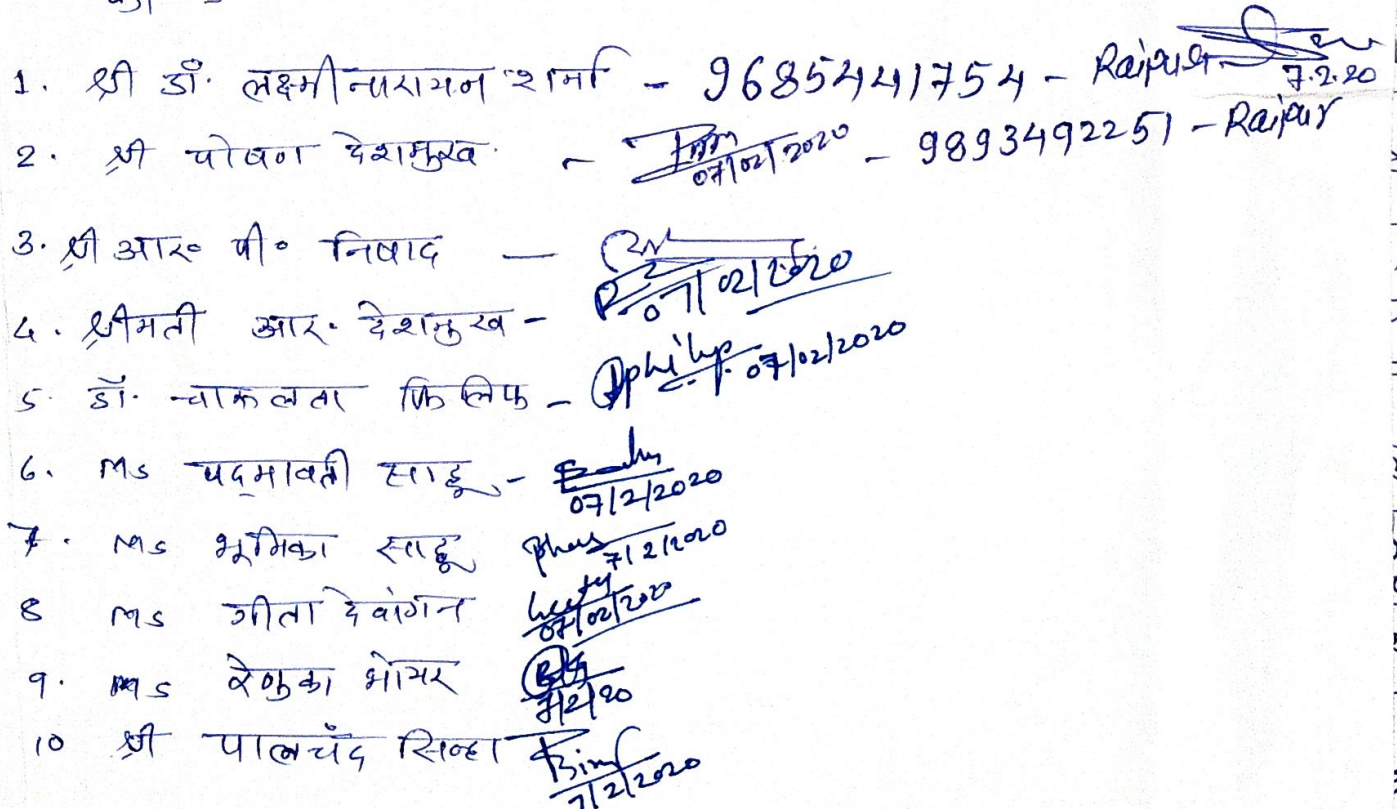 1. श्री डॉ. लक्ष्मीनारायन शर्मा - 9685441754 - Raipur 7.2.20
2. श्री पोषण देशमुख - 07/02/2020 - 9893492251 - Raipur
3. श्री आर० पी० निषाद — 07/02/2020
4. श्रीमती आर. देशमुख -
5. डॉ. चारूलता फिलिफ - Philip 07/02/2020
6. Ms पद्मावती साहू - 07/2/2020
7. Ms भूमिका साहू 7/2/2020
8 Ms गीता देवांगन 07/02/2020
9. Ms रेणुका भोयर 7/2/20
10 श्री पालचँद सिन्हा 7/2/2020